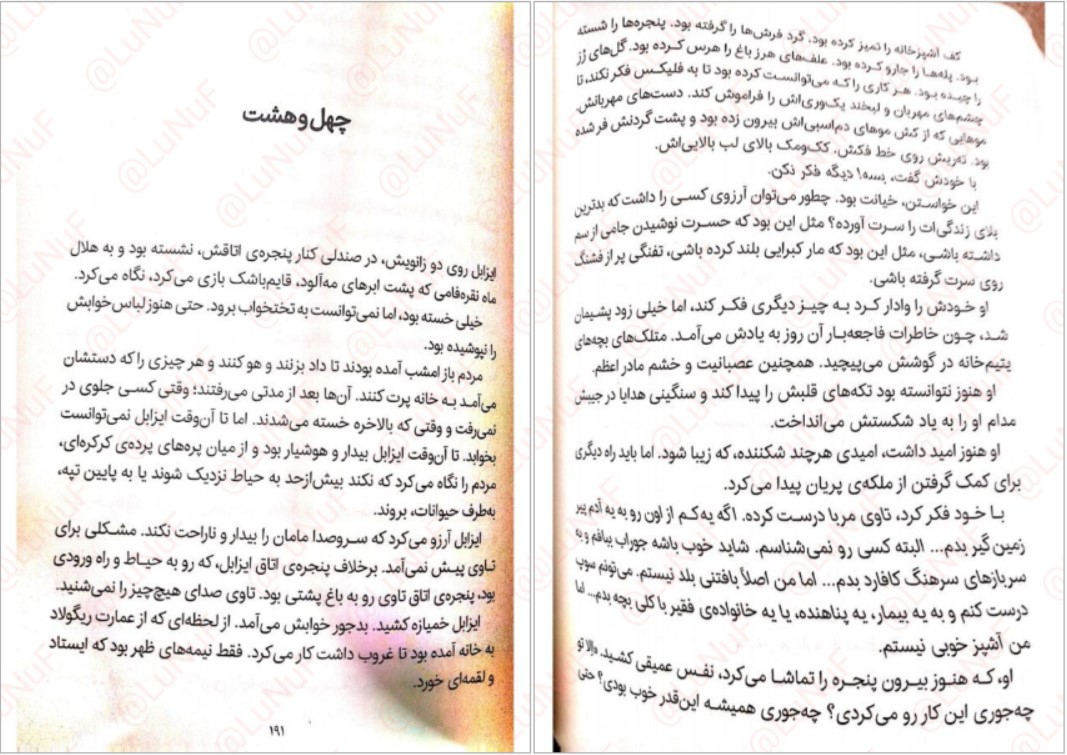 چهل‌وهشت
ایزابل روی دو زانویش، در صندلی کنار پنجره‌ی اتاقش، نشسته بود و به هلال
ماه نقره‌فامی که پشت ابرهای مه‌آلود، قایم‌باشک بازی می‌کرد، نگاه می‌کرد.
خیلی خسته بود، اما نمی‌توانست به تختخواب برود. حتی هنوز لباس خوابش
را نپوشیده بود.
مردم باز امشب آمده بودند تا داد بزنند و هو کنند و هر چیزی را که دستشان
می‌آمد به خانه پرت کنند. آن‌ها بعد از مدتی می‌رفتند؛ وقتی کسی جلوی در
نمی‌رفت و وقتی که بالاخره خسته می‌شدند. اما تا آن‌وقت ایزابل نمی‌توانست
بخوابد. تا آن‌وقت ایزابل بیدار و هوشیار بود و از میان پره‌های پرده‌ی کرکره‌ای،
مردم را نگاه می‌کرد که نکند بیش‌ازحد به حیاط نزدیک شوند یا به پایین تپه،
به‌طرف حیوانات، بروند.
ایزابل آرزو می‌کرد که سروصدا مامان را بیدار و ناراحت نکند. مشکلی برای
تاوی پیش نمی‌آمد. برخلاف پنجره‌ی اتاق ایزابل، که رو به حیاط و راه ورودی
بود، پنجره‌ی اتاق تاوی رو به باغ پشتی بود. تاوی صدای هیچ‌چیز را نمی‌شنید.
ایزابل خمیازه کشید. بدجور خوابش می‌آمد. از لحظه‌ای که از عمارت ریگولاد
به خانه آمده بود تا غروب داشت کار می‌کرد. فقط نیمه‌های ظهر بود که ایستاد
و لقمه‌ای خورد.
۱۹۱
کف آشپزخانه را تمیز کرده بود. گرد فرش‌ها را گرفته بود. پنجره‌ها را شسته
بود. پله‌ها را جارو کرده بود. علف‌های هرز باغ را هرس کرده بود. گل‌های رُز
را چیده بود. هر کاری را که می‌توانست کرده بود تا به فلیکس فکر نکند، تا
چشم‌های مهربان و لبخند یک‌وری‌اش را فراموش کند. دست‌های مهربانش.
موهایی که از کش موهای دم‌اسبی‌اش بیرون زده بود و پشت گردنش فر شده
بود. ته‌ریش روی خط فکش. کک‌ومک بالای لب بالایی‌اش.
با خودش گفت، بسه! دیگه فکر نکن.
این خواستن، خیانت بود. چطور می‌توان آرزوی کسی را داشت که بدترین
بلای زندگی‌ات را سرت آورده؟ مثل این بود که حسرت نوشیدن جامی از سم
داشته باشی، مثل این بود که مار کبرایی بلند کرده باشی، تفنگی پر از فشنگ
روی سرت گرفته باشی.
او خودش را وادار کرد به چیز دیگری فکر کند، اما خیلی زود پشیمان
شد، چون خاطرات فاجعه‌بار آن روز به یادش می‌آمد. متلک‌های بچه‌های
یتیم‌خانه در گوشش می‌پیچید. همچنین عصبانیت و خشم مادر اعظم.
او هنوز نتوانسته بود تکه‌های قلبش را پیدا کند و سنگینی هدایا در جیبش
مدام او را به یاد شکستش می‌انداخت.
او هنوز امید داشت، امیدی هرچند شکننده، که زیبا شود. اما باید راه دیگری
برای کمک گرفتن از ملکه‌ی پریان پیدا می‌کرد.
با خود فکر کرد، تاوی مربا درست کرده. اگه یه‌کم از اون رو به یه آدم پیر
زمین گیر بدم... البته کسی رو نمی‌شناسم. شاید خوب باشه جوراب ببافم و به
سربازهای سرهنگ کافارد بدم... اما من اصلاً بافتنی بلد نیستم. می‌تونم سوپ
درست کنم و به یه بیمار، یه پناهنده، یا یه خانواده‌ی فقیر با کلی بچه بدم... اما
من آشپز خوبی نیستم.
او، که هنوز بیرون پنجره را تماشا می‌کرد، نفس عمیقی کشید. «اِلا تو
چه‌جوری این کار رو می‌کردی؟ چه‌جوری همیشه این‌قدر خوب بودی؟ حتی
@LuNuF